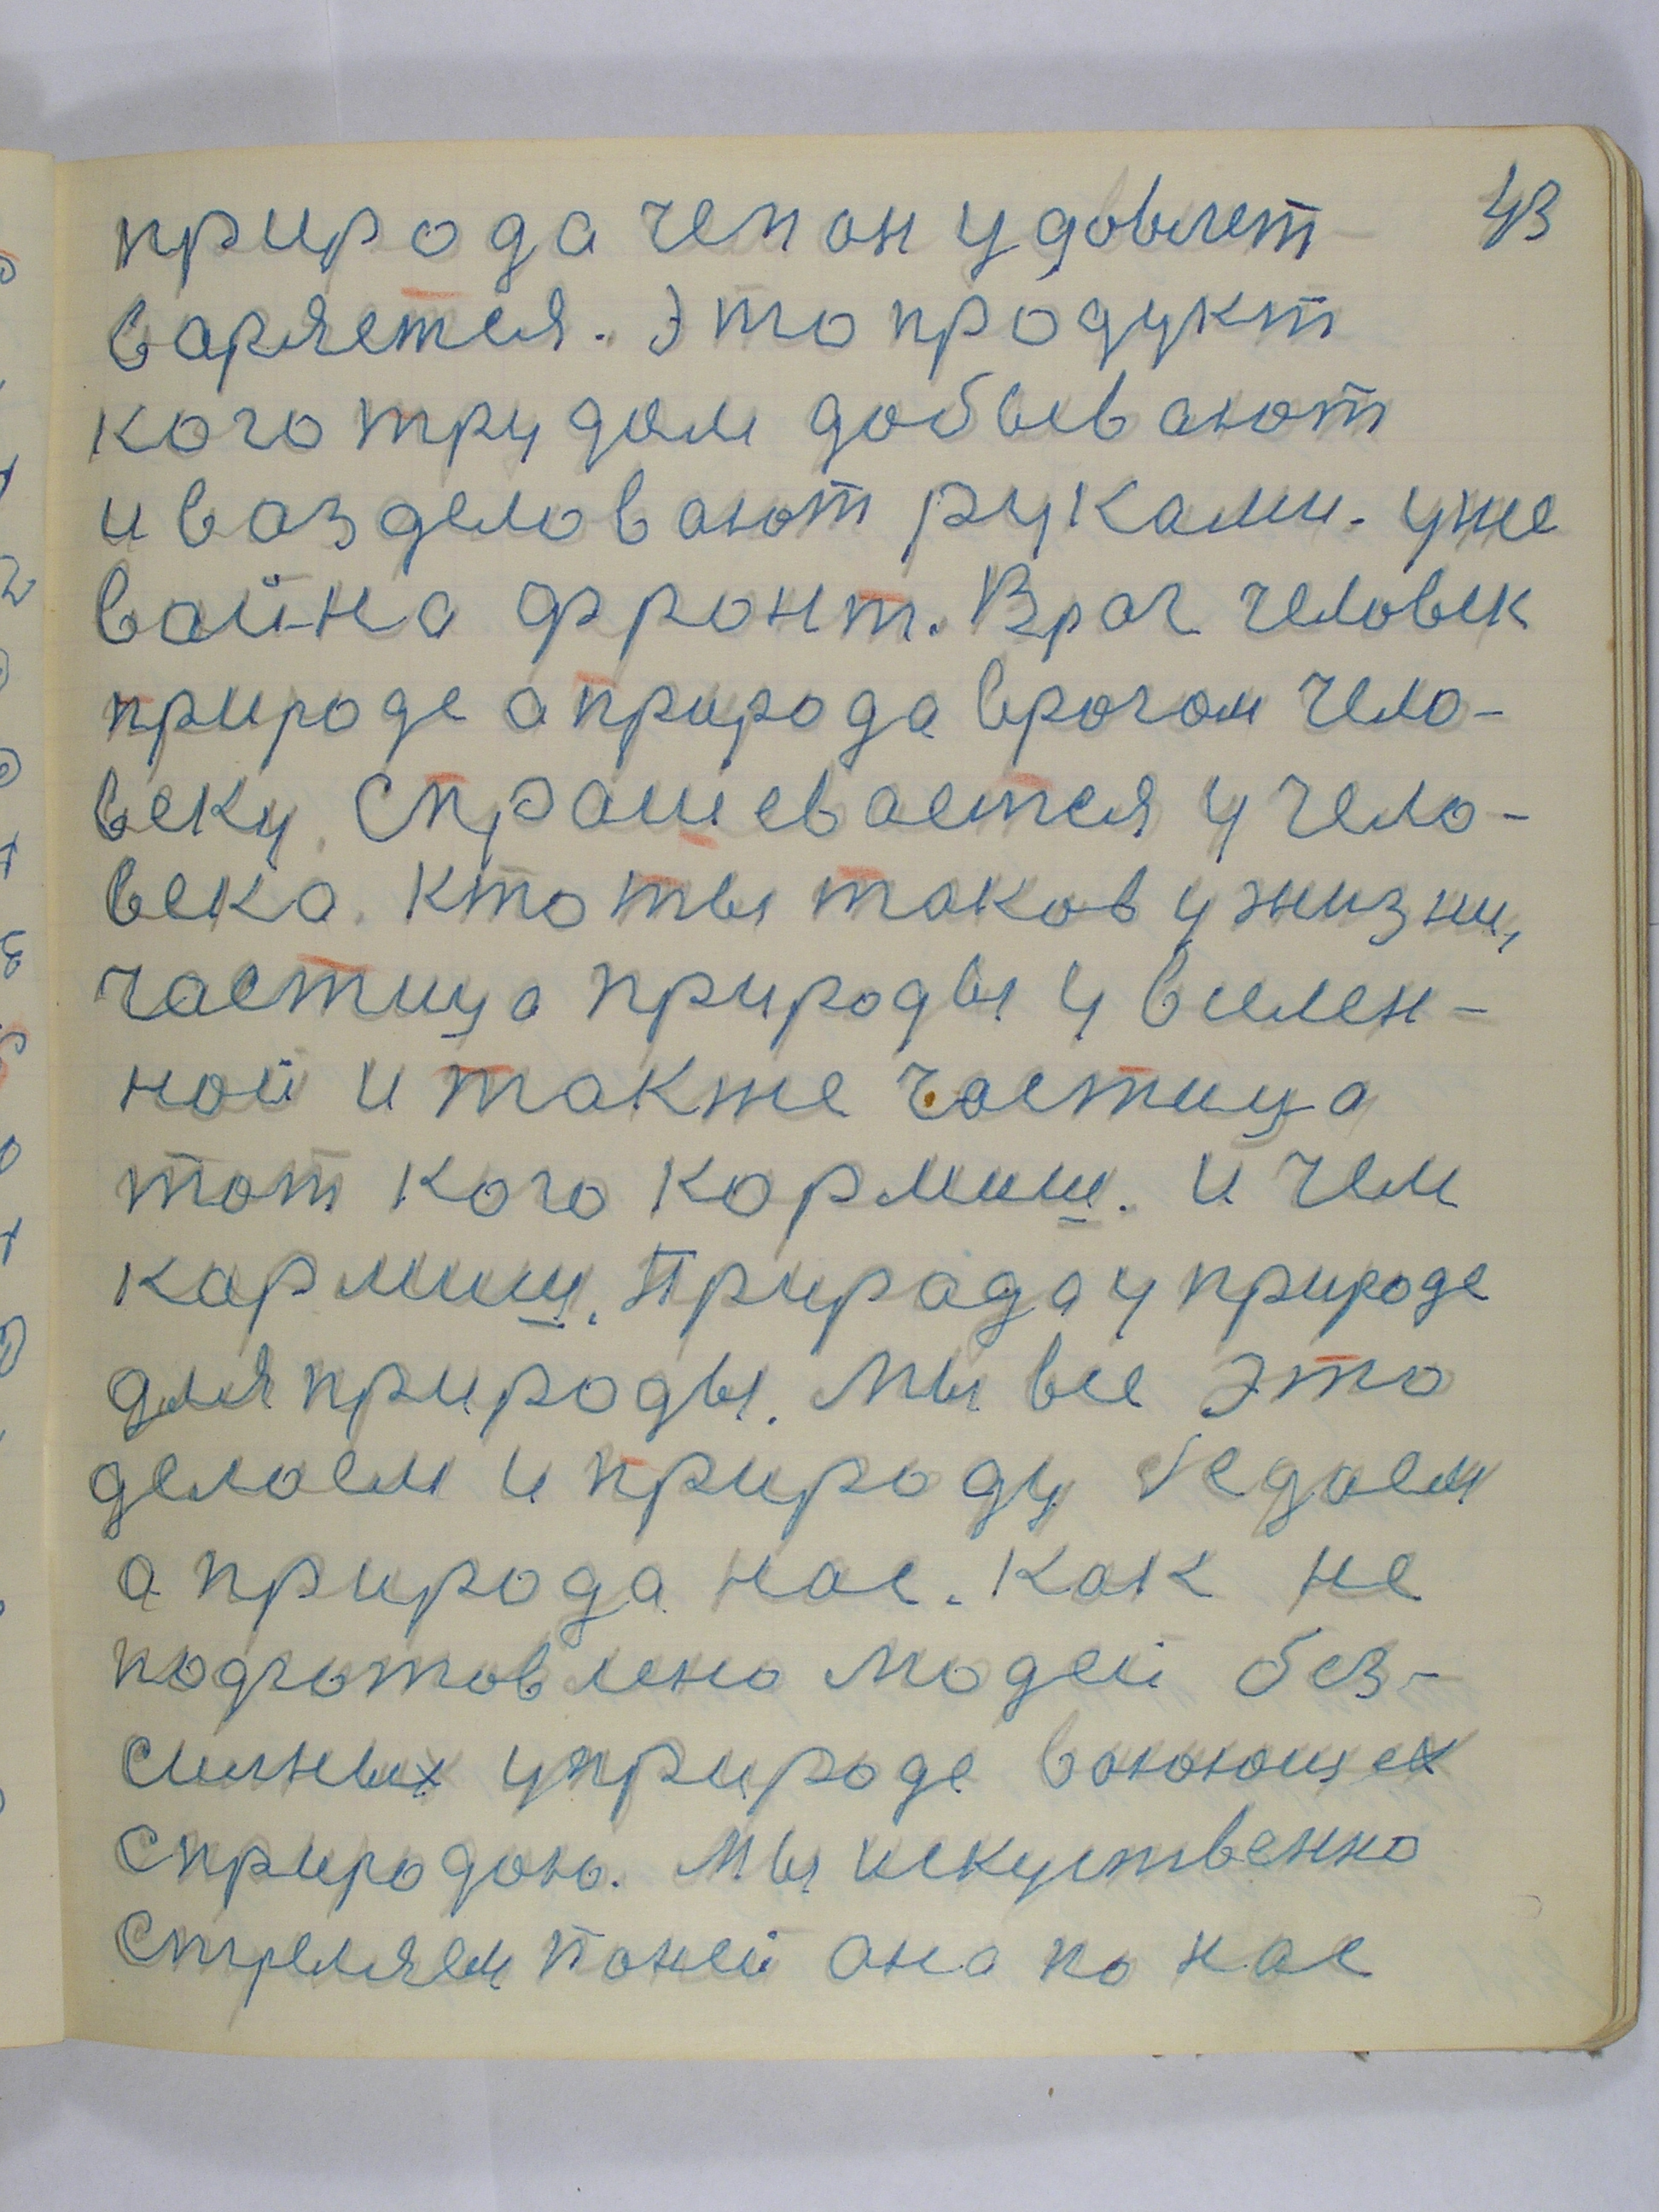 43
природа чем он удовлет-
варяется. Это продукт
кого трудом добывают
и возделовают руками. уже
вайна фронт. Враг человек
природе а природа врагом чело-
веку. Спрашевается у чело-
века. кто ты таков у жизни,
частица природы у вселен-
ной и также частица
тот кого кормиш. и чем
кормиш. Прирада у природе
для природы. Мы все это
делаем и природу едаем
а природа нас. как не
подготовлено людей без-
сильных у природе воюющех
с природою. Мы искуственно
стреляем по ней она по нас